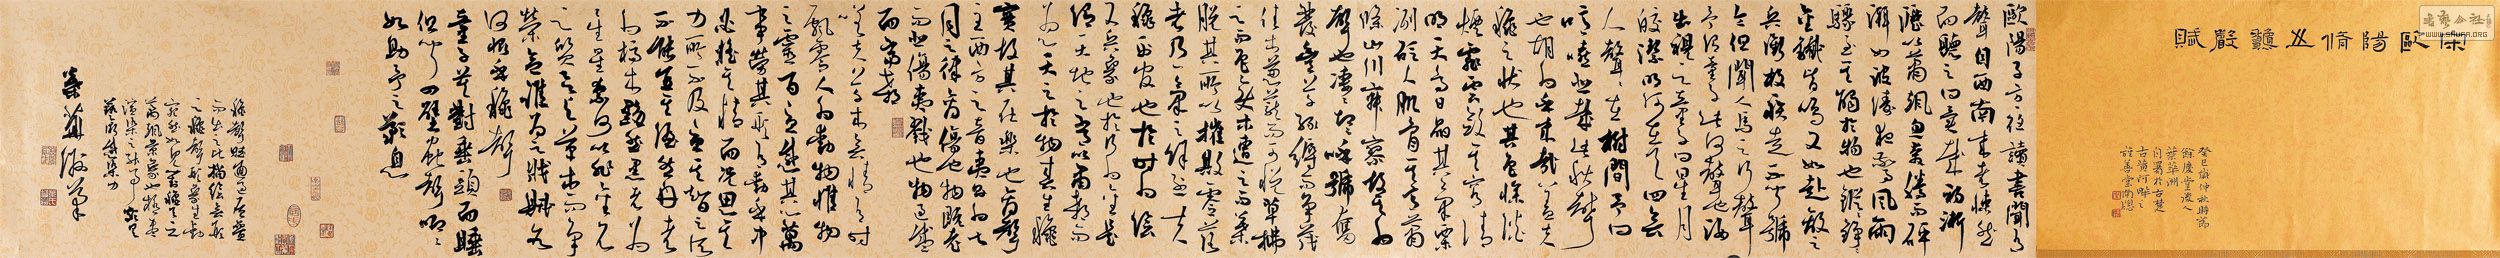 宋歐陽脩秋聲賦
癸巳歲仲秋時節
餘慶堂後人
葉華洲
自署於古楚
歐陽子方夜讀書聞有
聲自西南來者悚然
而聽之曰異哉初淅
瀝以蕭颯忽奔騰而砰
湃如波濤夜驚風雨
驟至其觸於物也鏦鏦錚錚
金鐵皆鳴又如赴敵之
兵銜枚疾走不聞號
令但聞人馬之行聲
予謂童子此何聲也汝
出視之童子曰星月
皎潔明河在天四無
人聲聲在樹間予曰
噫嘻悲哉此秋聲
也胡為乎來哉蓋夫
秋之狀也其色慘淡
煙霏雲斂其容清
明天高日晶其氣慄
冽砭人肌骨其意蕭
條山川寂寥故其為
聲也淒淒切切呼號奮
發豐草綠縟而爭茂
佳木蔥蘢而可悅草拂
之而色變木遭之而葉
脫其所以摧敗零落
者乃一氣之餘烈夫
秋刑官也於時為陰
又兵象也於行為金是
謂天地之義以肅殺而
為心天之於物春生秋
實故其在樂也商聲
主西方之音夷則為七
月之律商傷也物既老
而悲傷夷戮也物過盛
而當殺
嗟夫草木無情有時
飄零人為動物惟物
之靈百憂感其心萬
事勞其形有動乎中
必搖其精而況思其
力所不及憂其智之所
不能宜其渥然丹者
為槁木黟然黑者為
星星奈何以非金石
之質欲與草木而爭
榮念誰為之戕賊亦
何恨乎秋聲
童子莫對垂頭而睡
但聞四壁蟲聲唧唧
如助予之歎息